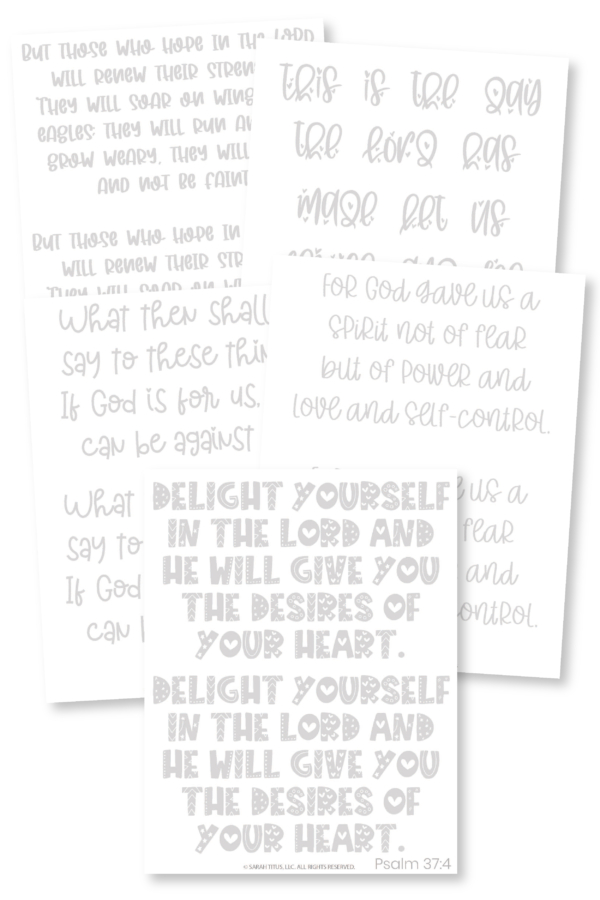 BUT THOSE WHO HOPE IN THE LORD
WILL RENEW THEIR
THEY WILL SOAR ON
EAGLES; THEY WILL RUN
GROW WEARY, THEY WILL
AND NOT BE FAINT
BUT THOSE WHO HOPE IN
WILL RENEW THEIR
THEY WILL SOAR ON
this is the day
the Lord has
made let us
What then shall
say to these
If God is for us,
can be against
What
say to
If God
can
FOR GOD gave us a
SPIRIT not of fear
but of POWER and
LOVE and SELF-CONTROL.
us a
fear
and
CONTROL.
DELIGHT YOURSELF
IN THE LORD AND
HE WILL GIVE YOU
THE DESIRES OF
YOUR HEART.
DELIGHT YOURSELF
IN THE LORD AND
HE WILL GIVE YOU
THE DESIRES OF
YOUR HEART.
© SARAH TITUS, LLC. ALL RIGHTS RESERVED.
Psalm 37:4